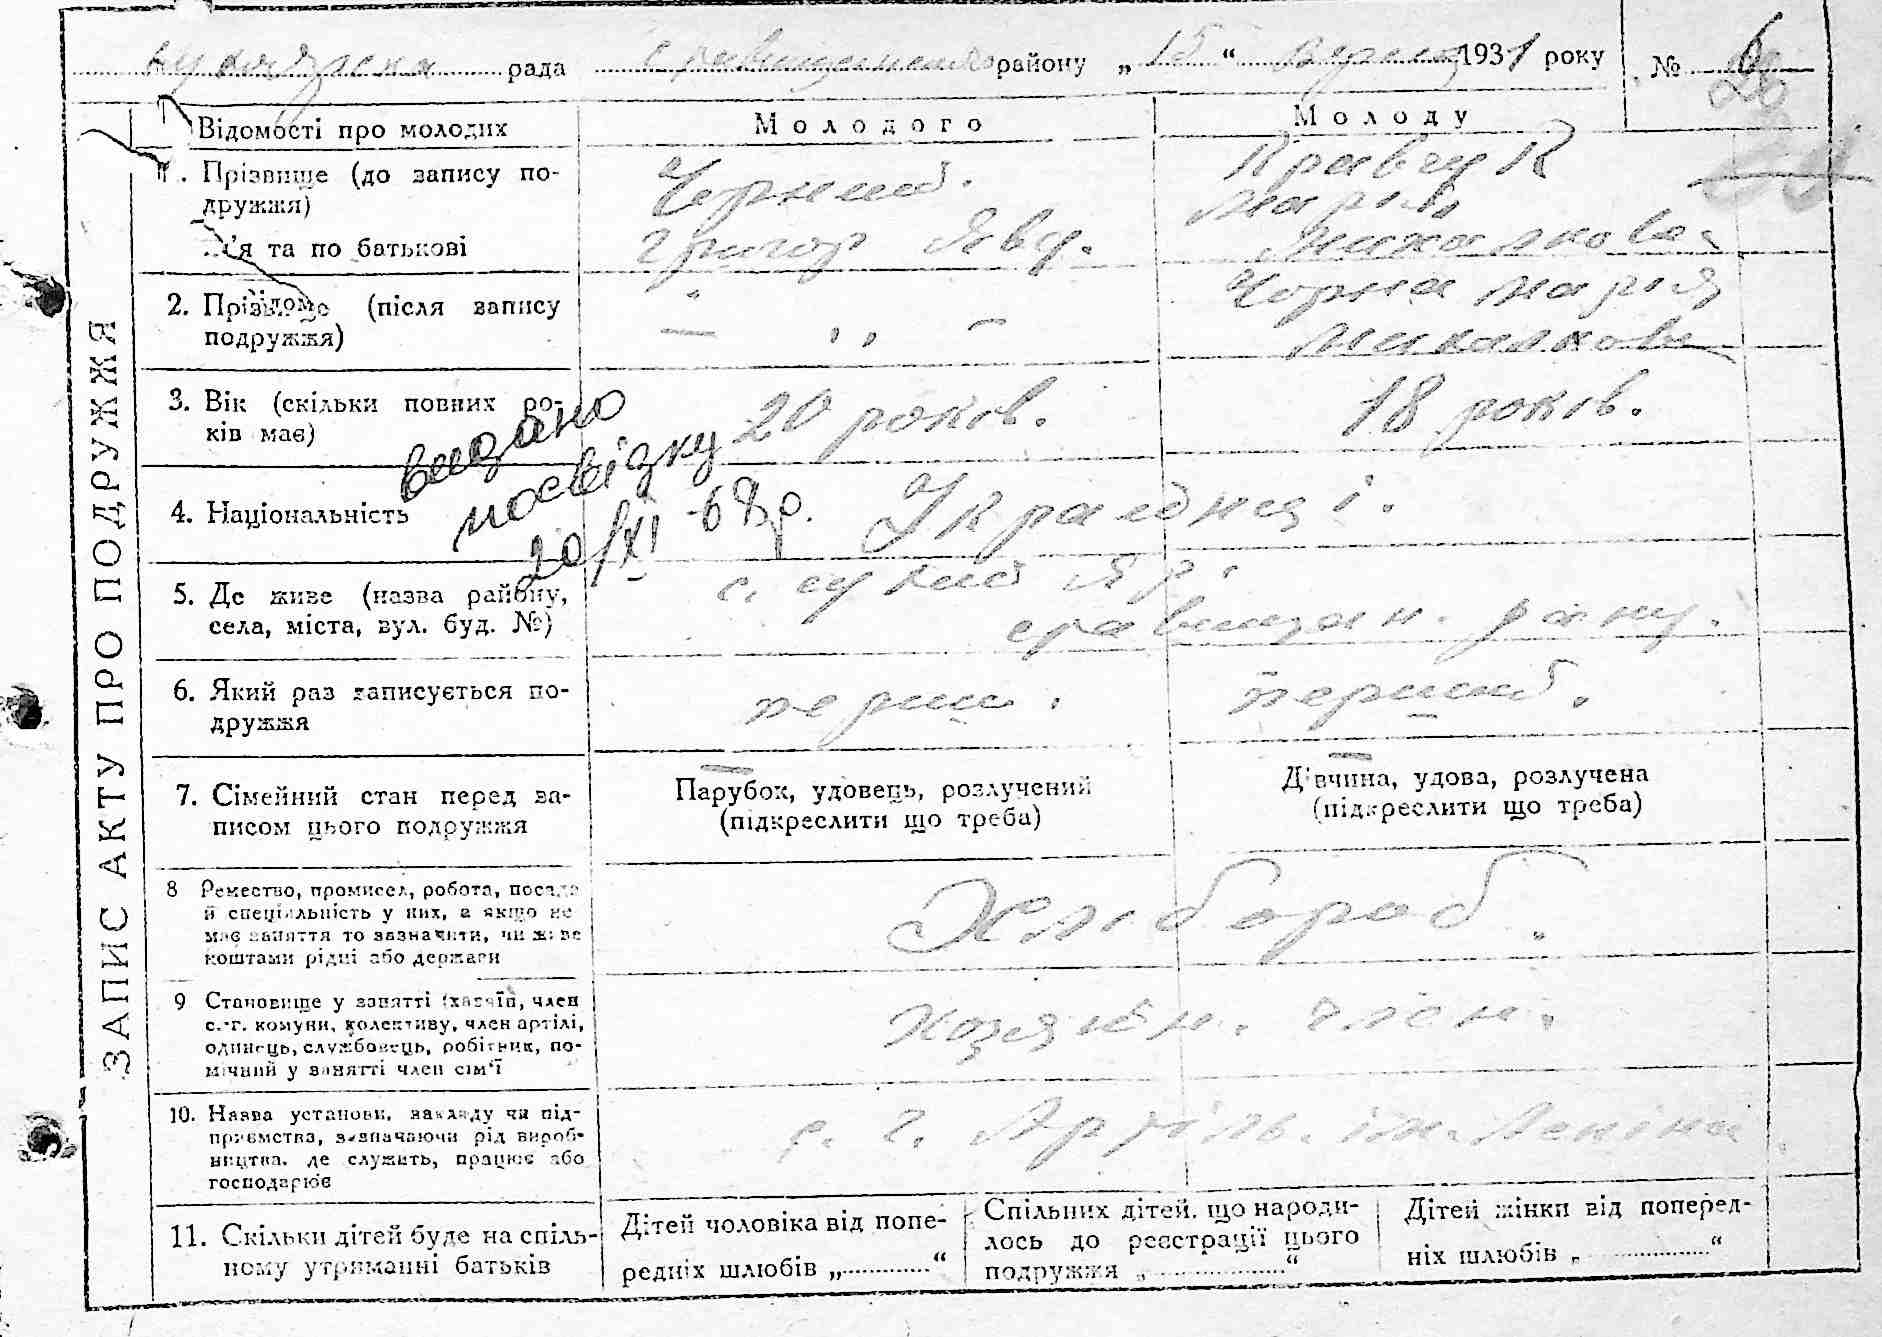 рада району „ 15 “ 1931 року № 6
ЗАПИС АКТУ ПРО ПОДРУЖЖЯ
Відомості про молодих
Молодого
Молоду
1. Прізвище (до запису по-
дружжя)
ім'я та по батькові
Чорний.
Григор Явд.
Кравчук
Марія
Михалкова
2. Прізвище (після запису
подружжя)
— „ —
Чорна Марія
Михалкова
3. Вік (скільки повних ро-
ків має)
20 років.
18 років.
видано
посвідку
20/XI -68р.
4. Національність
Українці.
5. Де живе (назва району,
села, міста, вул. буд. №)
с. Сухий Яр.
ставищан. рану.
6. Який раз записується по-
дружжя
перши.
перший.
7. Сімейний стан перед за-
писом цього подружжя
Парубок, удовець, розлучений
(підкреслити що треба)
Дівчина, удова, розлучена
(підкреслити що треба)
8 Ремество, промисел, робота, посада
й спеціяльність у них, а якщо не
має заняття то зазначити, чи живе
коштами рідні або держави
Хлібороб.
9 Становище у занятті (хазяїн, член
с.-г. комуни, колективу, член артілі,
одинець, службовець, робітник, по-
мічний у занятті член сім'ї
хозяїн. член.
10. Назва установи, закладу чи під-
приємства, зазначаючи рід вироб-
ництва, де служить, працює або
господарює
с. г. Артіль. ім. Леніна
11. Скільки дітей буде на спіль-
ному утриманні батьків
Дітей чоловіка від попе-
редніх шлюбів „ “
Спільних дітей, що народи-
лось до реєстрації цього
подружжя „ “
Дітей жінки від поперед-
ніх шлюбів „ “